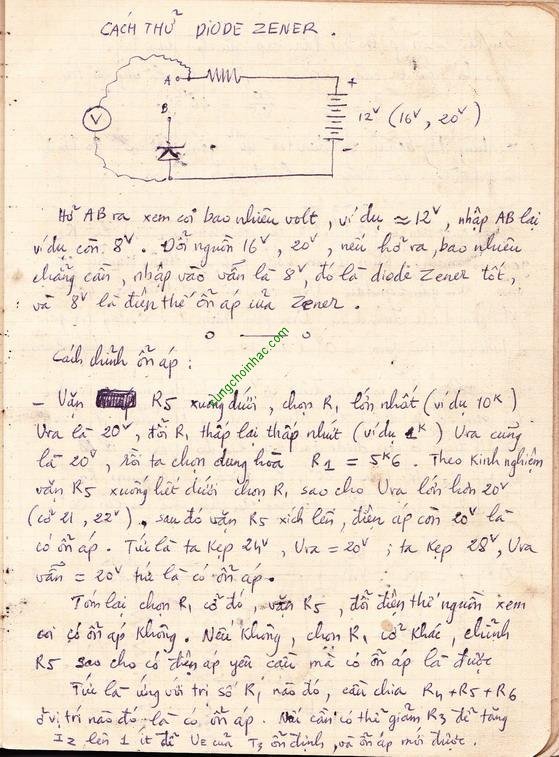 CÁCH THỬ DIODE ZENER.
A
+
V
B
12V (16V, 20V)
-
Hở AB ra xem coi bao nhiêu volt, ví dụ ≈ 12V, nhập AB lại
ví dụ còn 8V. Đổi nguồn 16V, 20V, nếu hở ra, bao nhiêu
chẳng cần, nhập vào vẫn là 8V, đó là diode Zener tốt,
và 8V là điện thế ổn áp của Zener.
cungchoinhac.com
Cách chỉnh ổn áp:
- Vặn R5 xuống dưới, chọn R1 lớn nhất (ví dụ 10K)
Ura là 20V, đổi R1 thấp lại thấp nhứt (ví dụ 1K) Ura cũng
là 20V, rồi ta chọn dung hòa R1 = 5K6. Theo kinh nghiệm
vặn R5 xuống hết dưới chọn R1 sao cho Ura lớn hơn 20V
(cỡ 21, 22V), sau đó vặn R5 xích lên, điện áp còn 20V là
có ổn áp. Tức là ta kẹp 24V, Ura = 20V; ta kẹp 28V, Ura
vẫn = 20V tức là có ổn áp.
Tóm lại chọn R1 cỡ đó, vặn R5, đổi điện thế nguồn xem
coi có ổn áp không. Nếu không, chọn R1 cỡ khác, chỉnh
R5 sao cho có điện áp yêu cầu mà có ổn áp là được
Tức là ứng với trị số R1 nào đó, cầu chia R4+R5+R6
ở vị trí nào đó là có ổn áp. Nếu cần có thể giảm R3 để tăng
Iz lên 1 ít để UE của T3 ổn định, và ổn áp mới được.